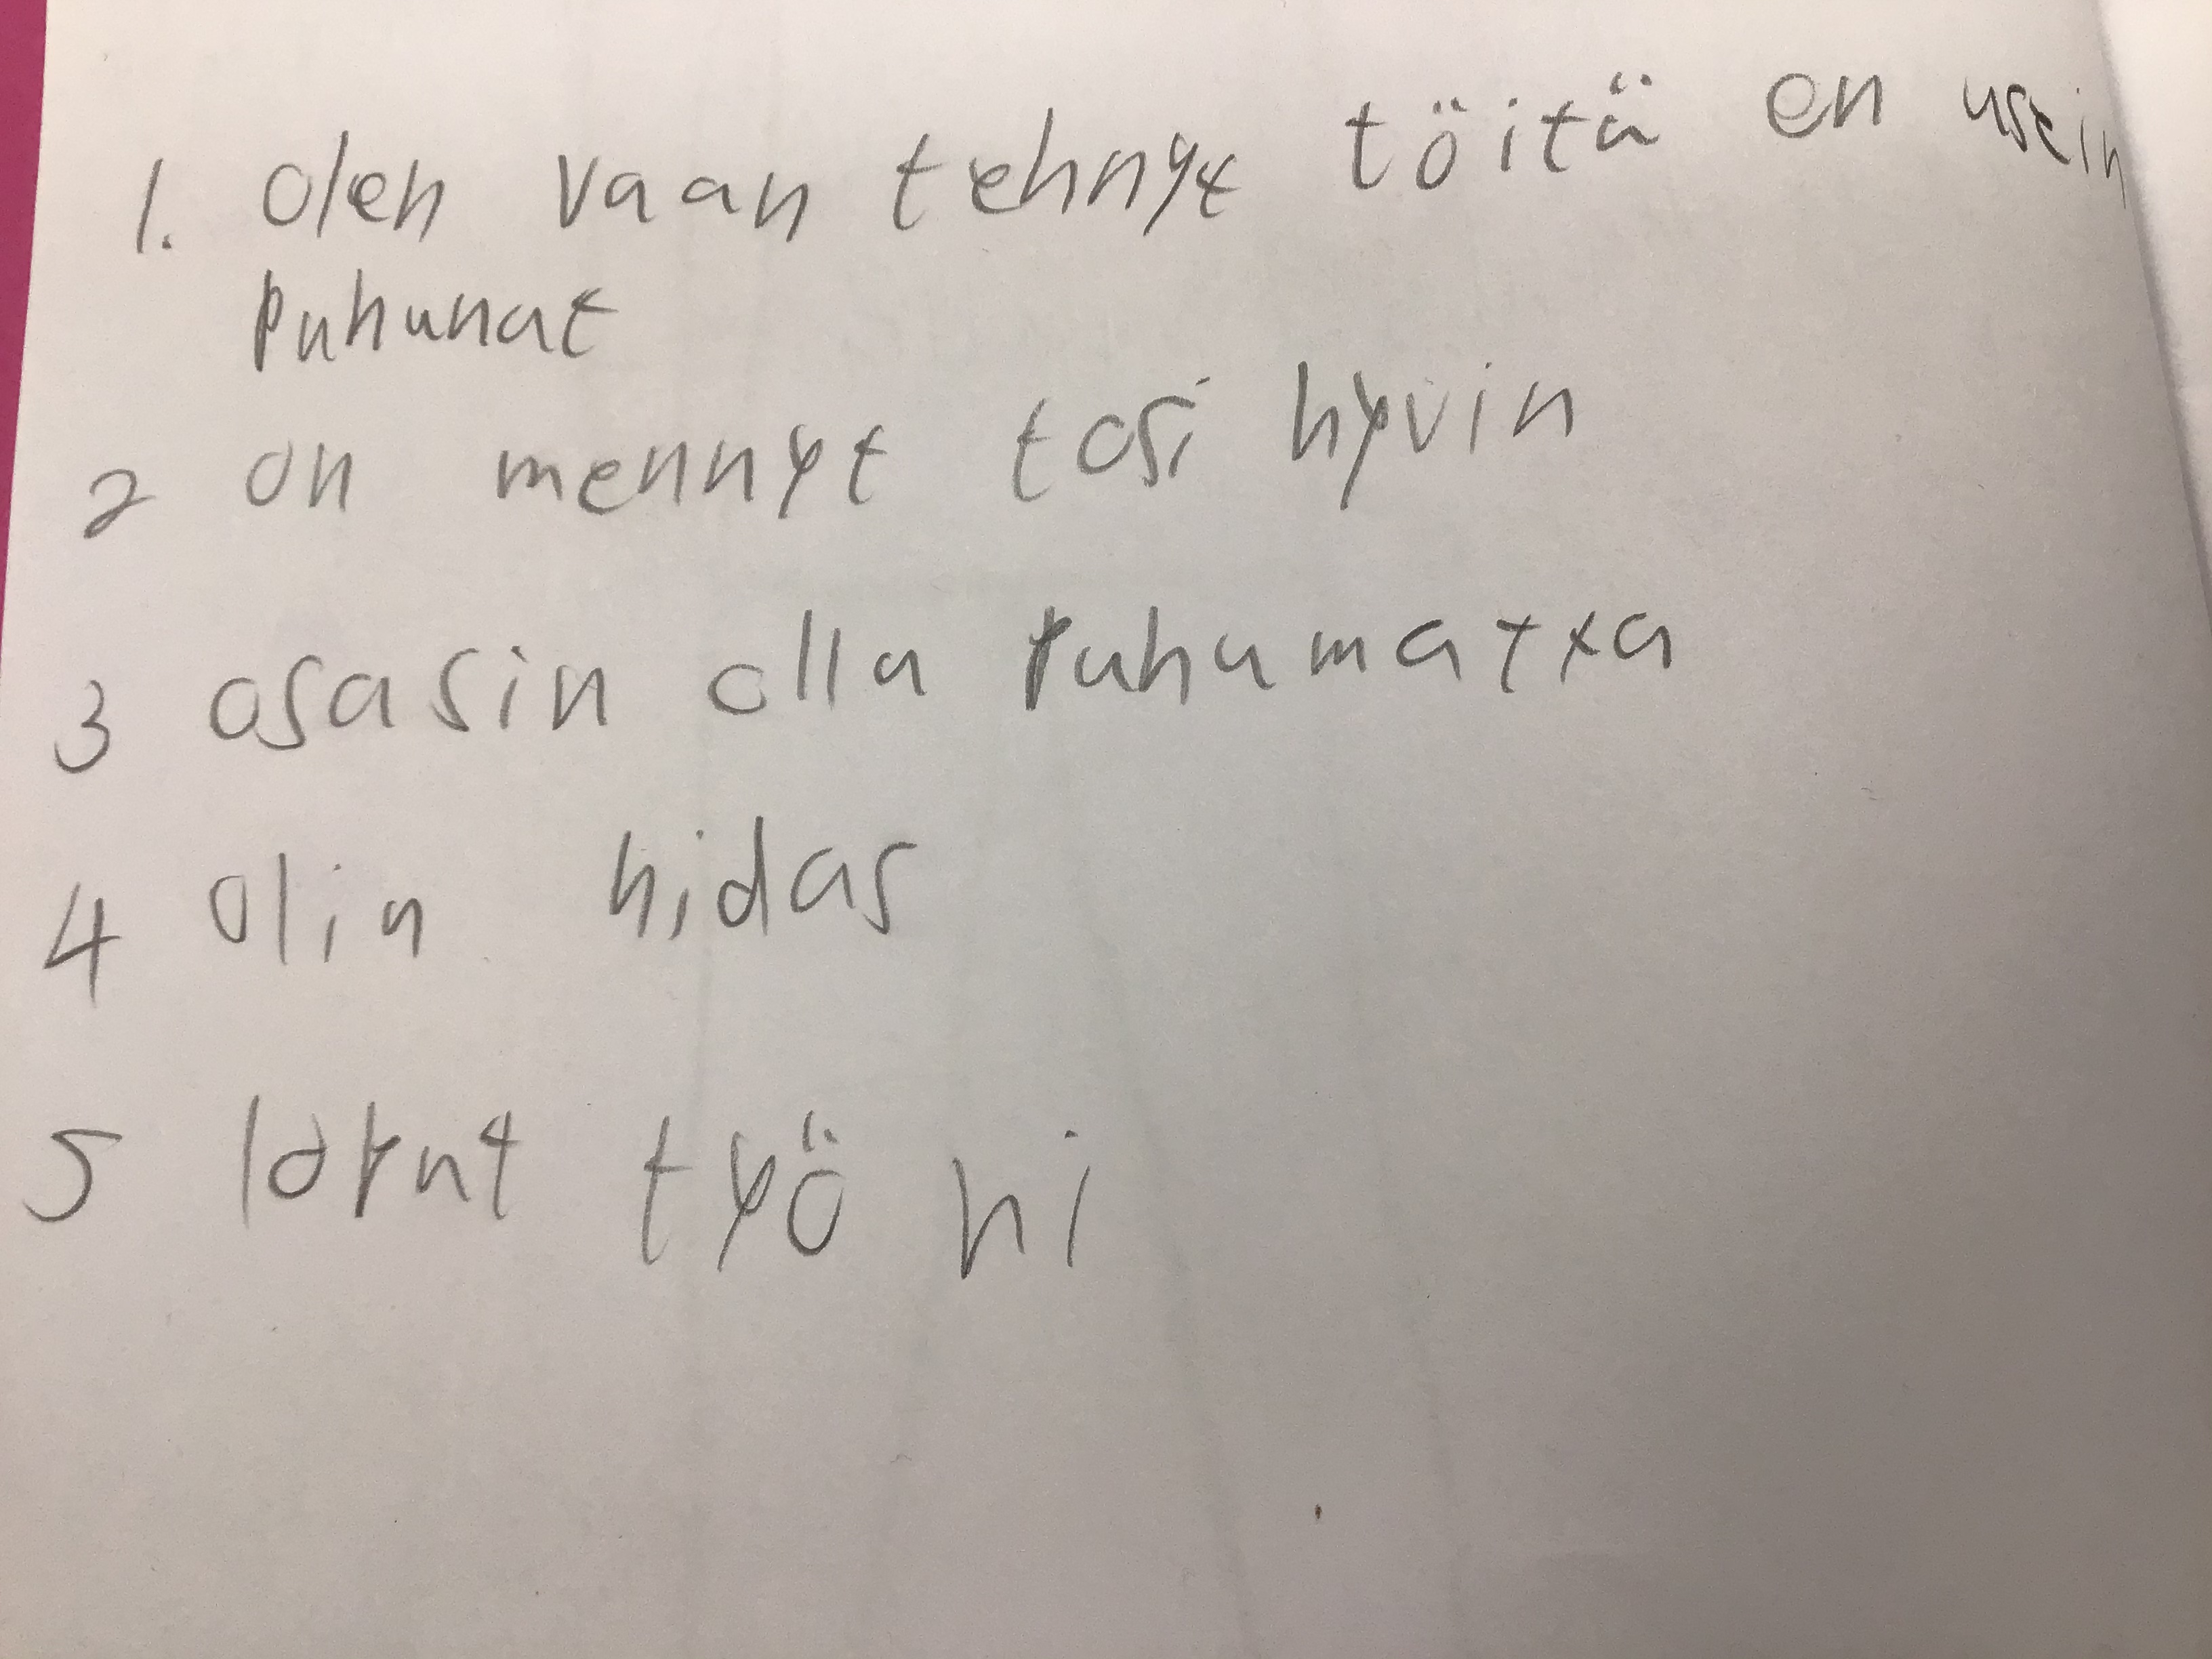 1. olen vaan tehnyt töitä en usein
puhunat
2 on mennyt tosi hyvin
3 osasin olla puhumatta
4 olin hidas
5 lopnt työ ni